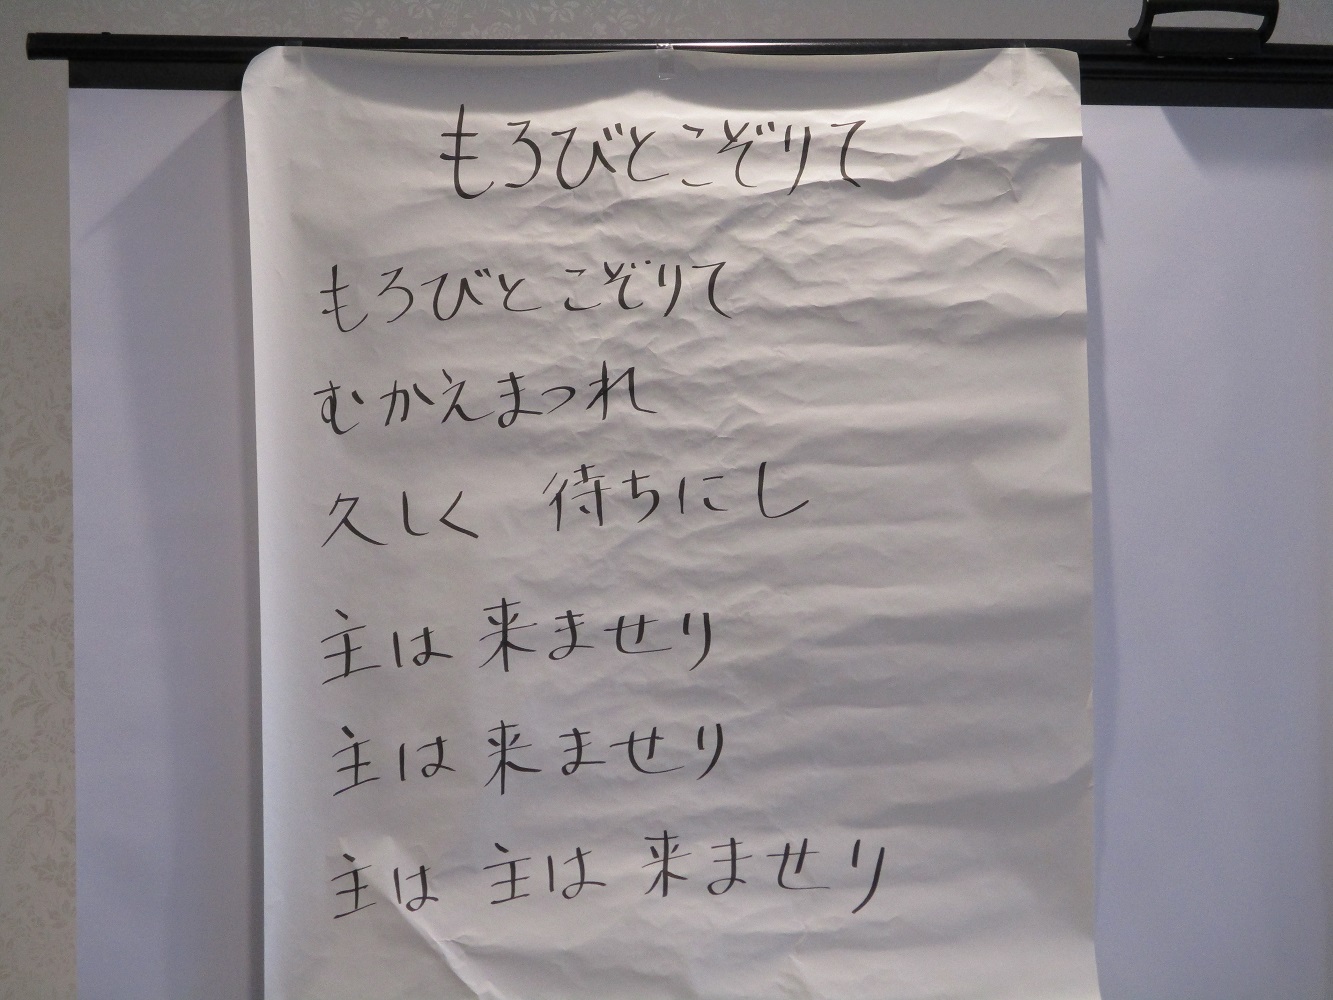 もろびとこぞりて
もろびとこぞりて
むかえまつれ
久しく　待ちにし
主は来ませり
主は来ませり
主は 主は 来ませり